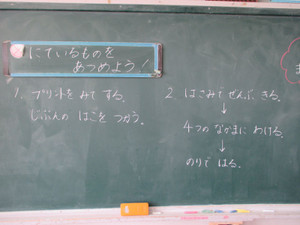 にているものを
あつめよう!
1. プリントを みて する。
じぶんの はこを つかう。
2. はさみで ぜんぶ きる。
↓
4つの なかまに わける。
↓
のりで はる。